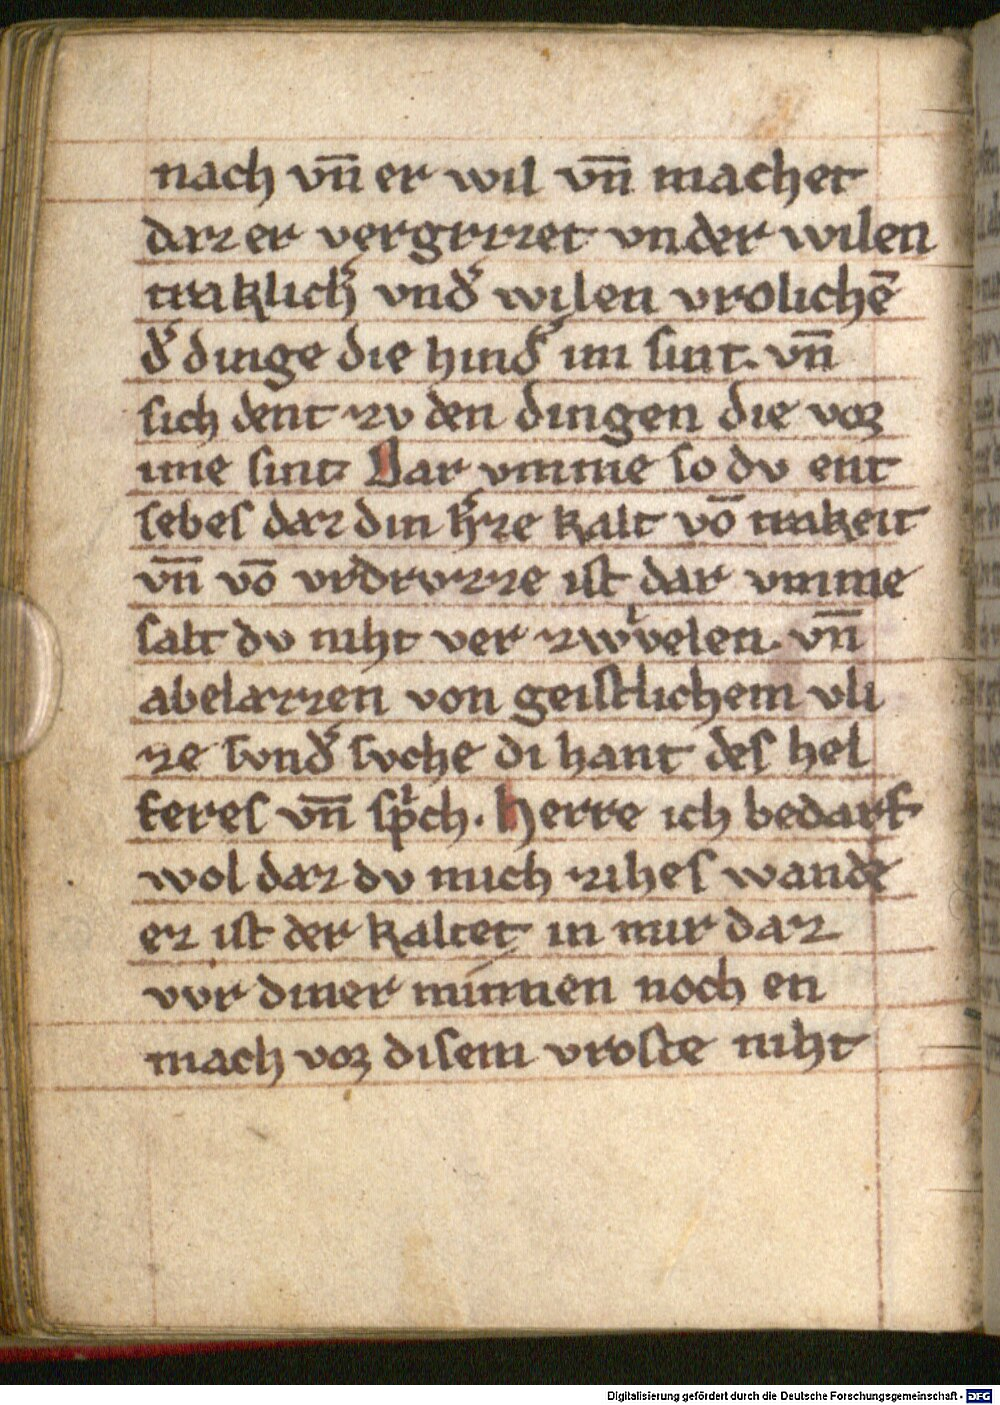 nach vn̄ er wil vn̄ machet
daz er vergizzet vnder wilen
traklich͛ vnd͛ wilen vrolichē
d͛ dinge die hind͛ im sint. vn̄
sich dent zv den dingen die voꝛ
ime sint Dar vmme so dv ent
sebes daz din h͛ze kalt vō trakeit
vn̄ vō vrdrvzze ist dar vmme
salt dv niht ver zwivelen. vn̄
abelazzen von geistlichem vli
ze sond͛ svche di hant des hel
feres vn̄ sprich. Herre ich bedarf
wol daz dv mich zihes wande
ez ist der kaltet in mir daz
vvr diner minnen noch en
mach voꝛ disem vroste niht
Digitalisierung gefördert durch die Deutsche Forschungsgemeinschaft - DFG